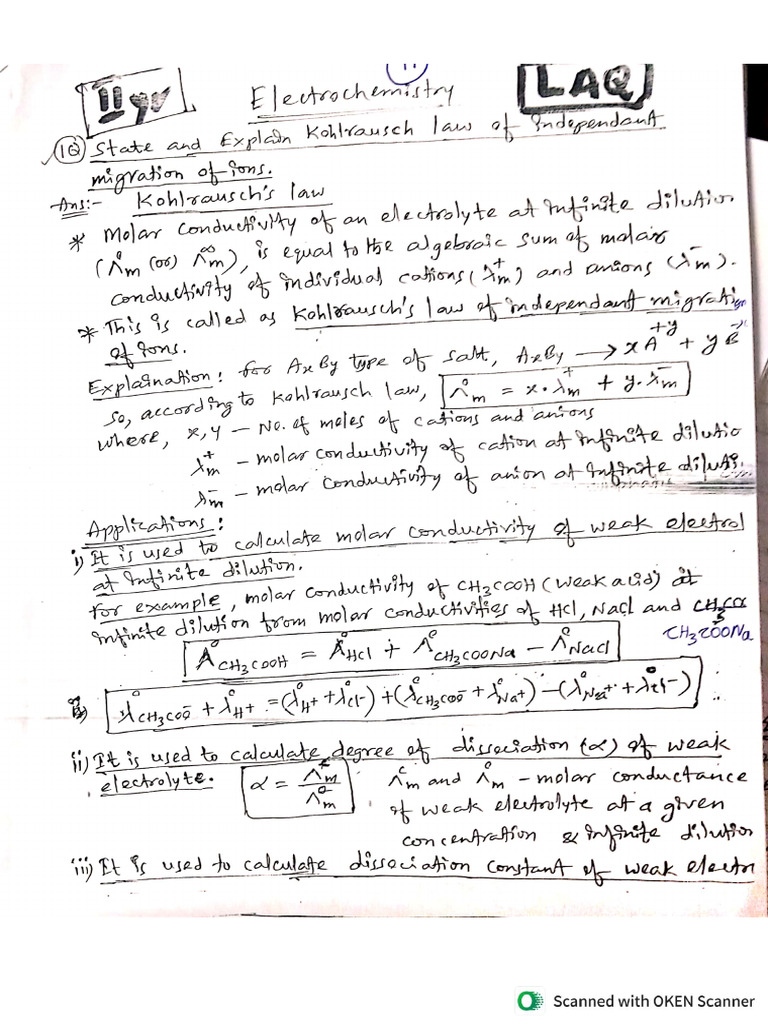 11
II yr
Electrochemistry
LAQ
1Q) State and Explain Kohlrausch law of Independant
migration of ions.
Ans:- Kohlrausch's law
* Molar conductivity of an electrolyte at Infinite dilution
(Λ°m (or) Λ∞m), is equal to the algebraic sum of molar
conductivity of individual cations (λ⁺m) and anions (λ⁻m).
* This is called as Kohlrausch's law of independant migrati
of ions.
Explaination: for AxBy type of salt, AxBy → xA⁺ʸ + yB⁻ˣ
so, according to Kohlrausch law, Λ°m = x·λ⁺m + y·λ⁻m
where, x, y – No. of moles of cations and anions
λ⁺m – molar conductivity of cation at infinite dilutio
λ⁻m – molar conductivity of anion at Infinite diluti
Applications:
i) It is used to calculate molar conductivity of weak electrol
at Infinite dilution.
for example, molar conductivity of CH3COOH (weak acid) at
infinite dilution from molar conductivities of HCl, NaCl and CH3CO
CH3COONa
Λ°CH3COOH = Λ°HCl + Λ°CH3COONa – Λ°NaCl
λ°CH3COO⁻ + λ°H⁺ = (λ°H⁺ + λ°Cl⁻) + (λ°CH3COO⁻ + λ°Na⁺) – (λ°Na⁺ + λ°Cl⁻)
ii) It is used to calculate degree of dissociation (α) of weak
electrolyte. α = Λᶜm / Λ°m Λᶜm and Λ°m – molar conductance
of weak electrolyte at a given
concentration & infinite dilution
iii) It is used to calculate dissociation constant of weak electr
Scanned with OKEN Scanner